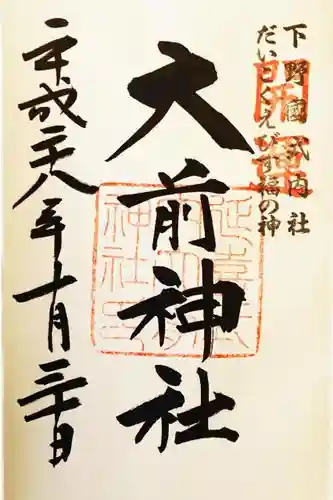 下野國式内社
だいこくえびす福の神
大前神社
平成二十八年十月三十日